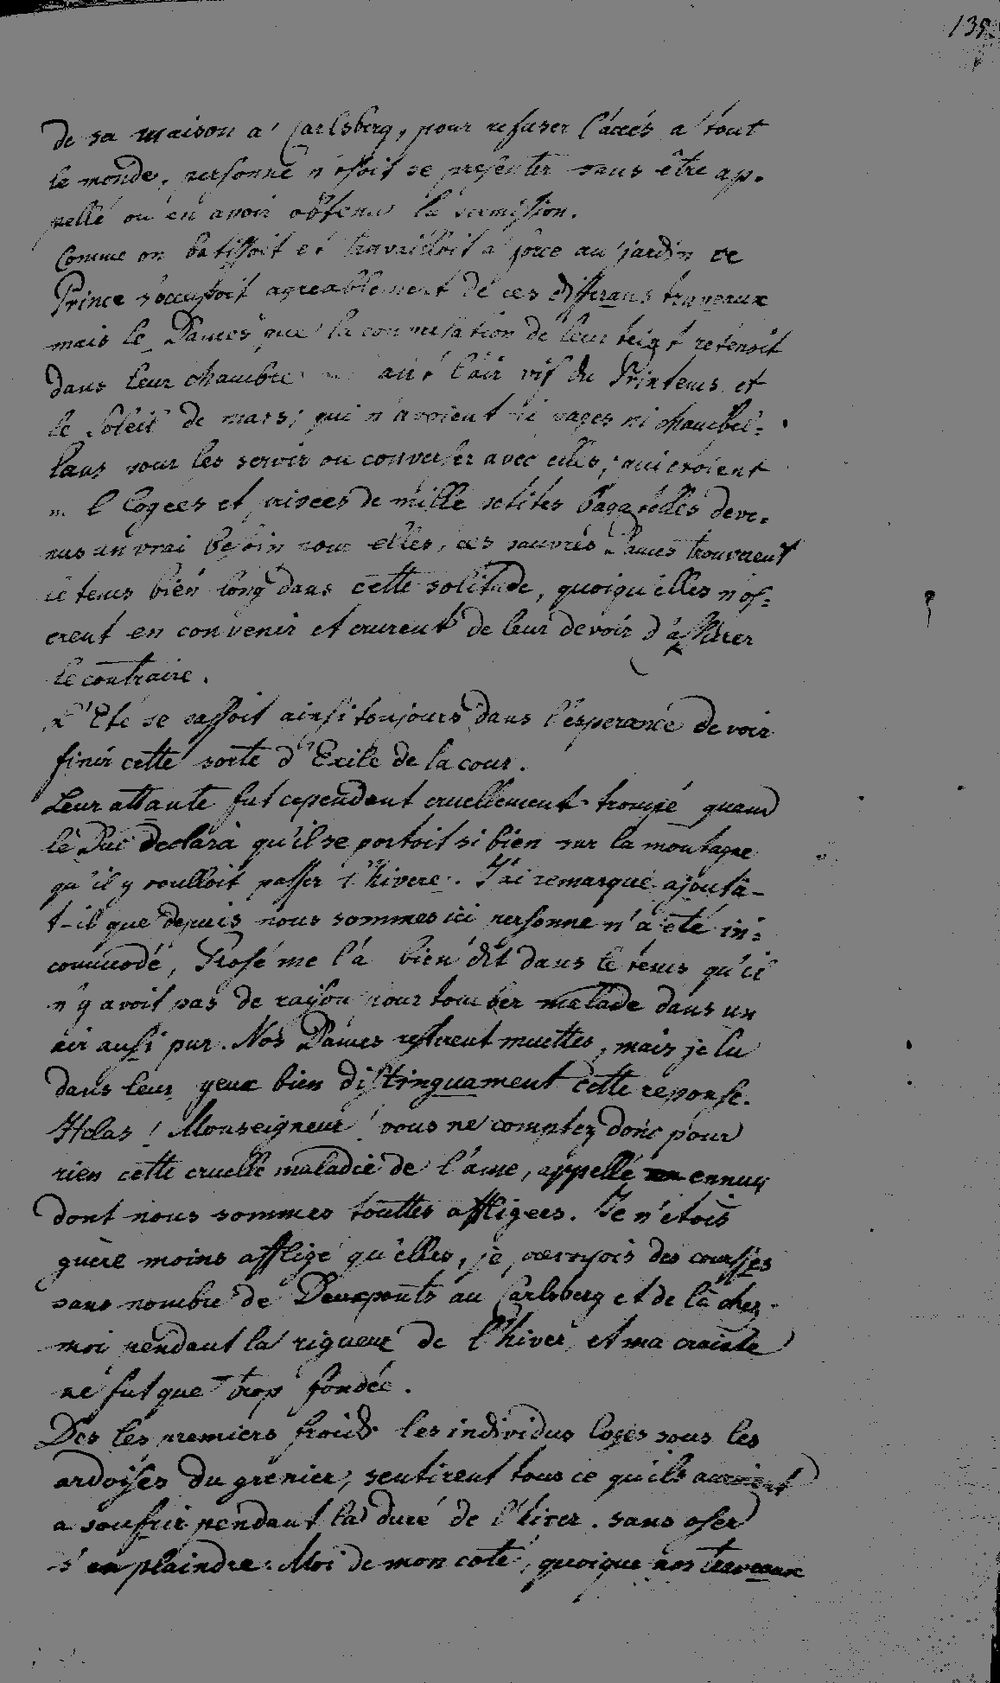 135
de sa maison a' Carlsberg, pour refuser l'accés a' tout
le monde. personne n'osoit se presenter sans être ap-
pellé ou en avoir obtenu la permission.
Comme on batissoit et travailloit a' force au jardin le
Prince s'occupoit agreablement de ces differans traveaux
mais le Dames que la conversation de leur teigt retenoit
dans leur chambre l'air vif du Printems et
le Soleil de mars; qui n'avoient ni pages ni chambel-
lans pour les servir ou converser avec elles; qui etoient
m l logees et privées de mille petites bagatelles deve-
nus un vrai besoin pour elles, ces pauvres Dames trouverent
le tems bien long dans cette solitude, quoiqu'elles n'os-
erent en convenir et crurent de leur devoir d'assurer
le contraire.
L'Eté se passoit ainsi toujours dans l'esperance de voir
finir cette sorte d'Exile de la cour.
Leur attante fut cependant cruellement trompé quand
le Duc declara qu'il se portoit si bien sur la montagne
qu'il y voulloit passer l'hivere. J'ai remarqué ajouta-
t-il que depuis nous sommes ici personne n'a eté in-
commodé, Prosé me l'a bien dit dans le tems qu'il
n'y avoit pas de rayson pour tomber malade dans un
air ausi pur. Nos Dames resterent muettes, mais je lu
dans leur yeux bien distinguament cette reponse.
Helas! Monseigneur! vous ne comptez donc pour
rien cette cruelle maladie de l'ame, appellé ennuy
dont nous sommes touttes affligees. Je n'etois
guere moins affligé qu'elles, je prevoyois des courses
sans nombre de Deuxponts au Carlsberg et de là chez
moi pendant la rigueur de l'hiver et ma crainte
ne fut que trop fondée.
Des les premiers froids les individus logés sous les
ardoises du grenier, sentirent tous ce qu'ils auroient
a soufrir pendant la duré de l'hiver. sans oser
s'en plaindre. Moi de mon coté, quoique nos traveaux